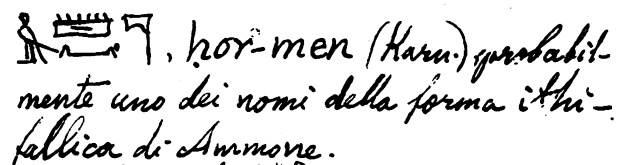 , hor-men (Karn.) probabil-
mente uno dei nomi della forma ithi-
fallica di Ammone.